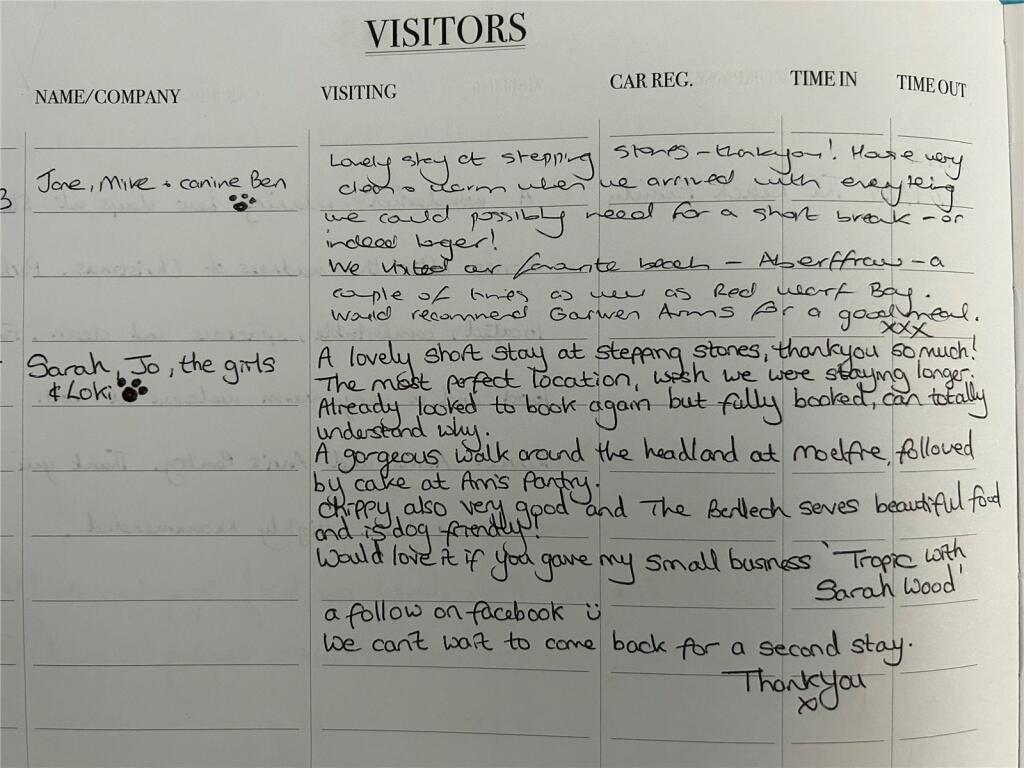 VISITORS
NAME/COMPANY VISITING CAR REG. TIME IN TIME OUT
3
Jane, Mike + canine Ben
Lovely stay at stepping stones - thankyou! House very
clean + warm when we arrived with everything
we could possibly need for a short break - or
indeed longer!
We visited our favourite beach - Aberffraw - a
couple of times as well as Red Wharf Bay.
Would recommend Gaerwen Arms for a good meal.
xxx
Sarah, Jo, the girls
& Loki
A lovely short stay at stepping stones, thankyou so much!
The most perfect location, wish we were staying longer.
Already looked to book again but fully booked, can totally
understand why.
A gorgeous walk around the headland at moelfre, followed
by cake at Ann's Pantry.
Chippy also very good and The Berllech serves beautiful food
and is dog friendly!
Would love it if you gave my small business 'Tropic with
Sarah Wood'
a follow on facebook ü
We can't wait to come back for a second stay.
Thankyou
x